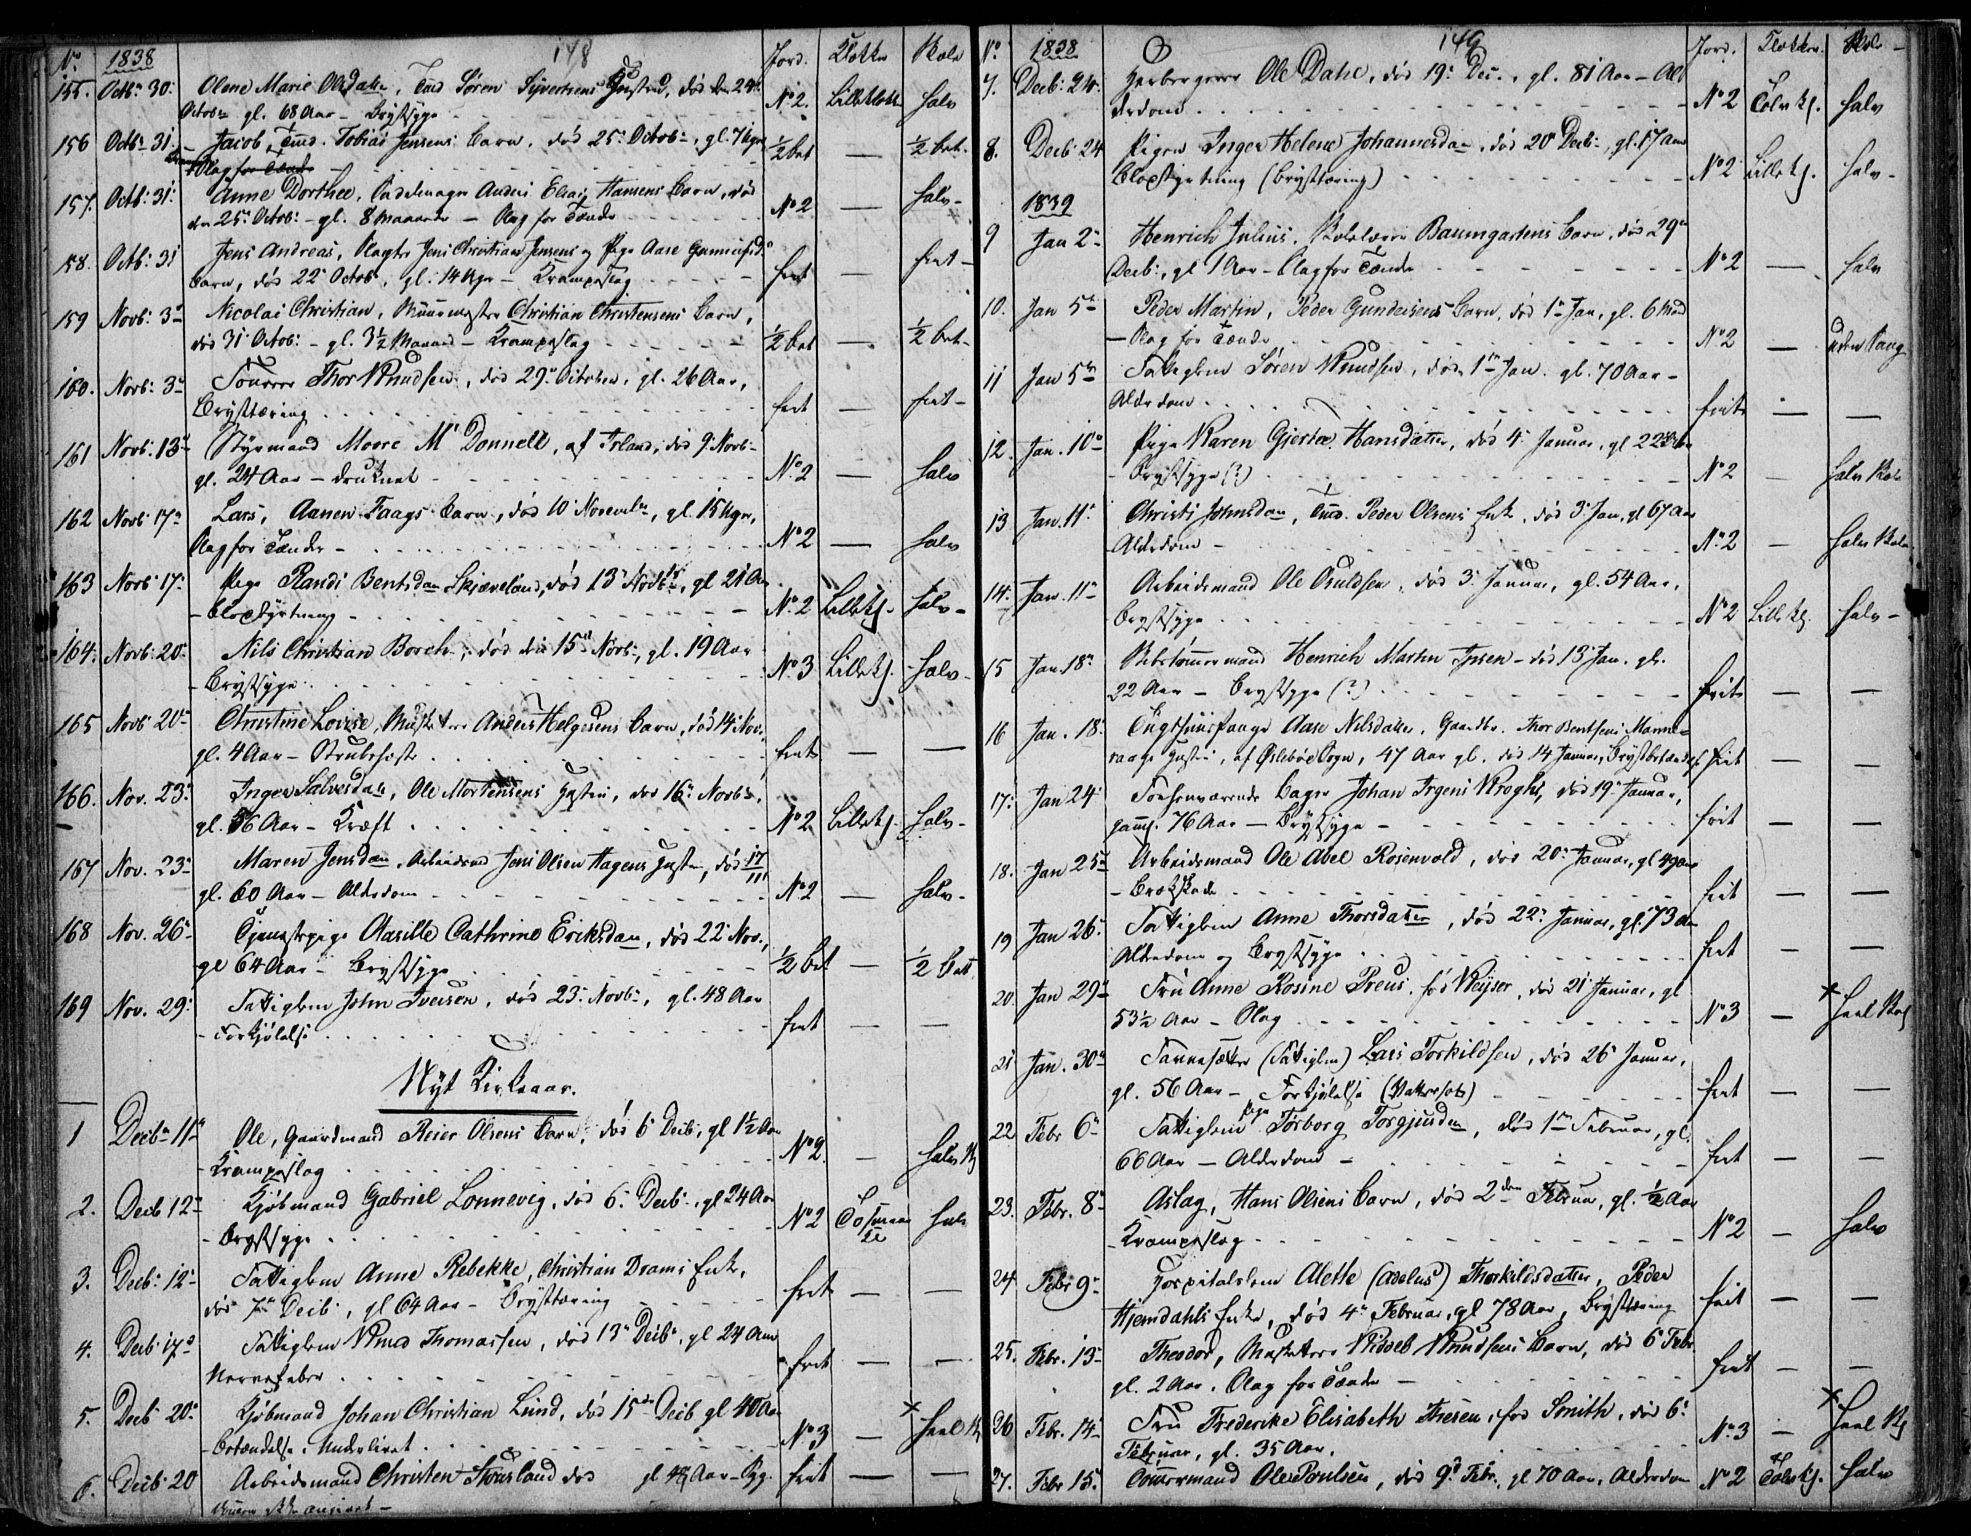 148
No 1838 Jord. Klokke Skole
155. Octbr 30: Olene Marie Olsdatter, Tmd Søren Syvertsens Hustrue, død den 24de No 2. Lilleklokke halv
Octobr gl. 68 Aar – Brystsyge
156 Octbr 31. Jacob, Tmd. Tobias Jensens Barn, død 25. Octobr, gl. 7 Uger ½ bet — ½ bet.
Slag for Tænder
157. Octb: 31. Anne Dorthea, Anders Hansens Barn, død
den 25. Octob: – gl. 8 Maaneder – Slag for Tænder No 2 halv
158. Octb: 31 Jens Andreas, Slagter Jens Christian Jensens og Pige Aase
Barn, død 22 Octob., gl. 14 Uger – Krampeslag frit — frit
159 Novb: 3de Nicolai Christian, Muurmester Christian Christensens Barn,
død 31 Octob: – gl. 3½ Maaned – Krampeslag ½ bet — ½ bet
160. Novb: 3de Thor Knudsen, død 29de October, gl. 26 Aar,
Brysttæring frit — frit
161 Novb: 13de Styrmand Moore Mc Donnell, af Irland, død 9. Novb:
gl. 24 Aar – druknet No 2 — halv
162 Novb 17de Lars, Aanen Faags Barn, død 10 November, gl. 15 Uger,
Slag for Tænder No 2 — halv
163 Novb 17. Pige Randi Bentsdatter Skjæveland, død 13 Novbr, gl. 21 Aar
– Blodstyrtning No. 2 Lillekl. halv
164. Novb: 20. Nils Christian Borch, død den 15de Novb:, gl. 19 Aar
– Brystsyge No 3 Lillekl. halv
165 Novb 20de Christine Lovise, Musketeer Anders Helgesens Barn, død 14 Nov.
gl. 4 Aar – Strubehoste frit — —
166. Nov. 23. Inger Salvesdatter, Ole Mortensens Hustru, død 16de Novbr.
gl. 56 Aar – Kræft No 2 Lillekl. halv
167 Nov. 23. Maren Jensdatter, Arbeidsmd Jens Olsen Hagens Hustru, død 17/11
gl. 60 Aar – Alderdom No 2 — halv
168 Nov. 26. Tjenestepige Aasille Cathrine Eriksdatter, død 22 Nov.,
gl 64 Aar – Brystsyge ½ bet — ½ bet
169 Nov. 29. Fattiglem John Iversen, død 23. Novb:, gl. 48 Aar
– Forkjølelse frit — —
Nyt Kirkeaar.
1 Decbr 11te Ole, Gaardmand Reier Olsens Barn, død 6 Decb:, gl 1½ Aar
– Krampeslag No 2. — halv Kl
2. Decb 12te Kjøbmand Gabriel Lonnevig, død 6. Decb:, gl 24 Aar
– Brystsyge No 2 halv
3. Decb: 12te Fattiglem Anne Rebekke, Christian Drams Enke,
død 7de Decb:, gl 64 Aar – Brysttæring frit — —
4. Decb 17de Fattiglem Knud Thomassen, død 13de Decb:, gl 24 Aar
Nervefeber frit — —
5. Decb 20de Kjøbmand Johan Christian Lund, død 15de Decb gl 40 Aar
– Betændelse i Underlivet No 3 — × heel Kl
6. Decb 20 Arbeidsmand Christen Stousland død gl 48 Aar – frit — —
149
No 1838 Jord. Klokker. Skole
7. Decb: 24. Herbergerer Ole Dahl, død 19de Dec., gl. 81 Aar – Al
derdom No 2 Tolvkl. halv
8. Decb: 24 Pigen Inger Helene Johannesdatter, død 20de Decb:, gl. 17 Aar
Blodstyrtning (Brysttæring) No 2 Lillekl. halv
1839
9 Jan 2de Henrich Julius, Skolelærer Baumgartens Barn, død 29de
Decb:, gl 1 Aar – Slag for Tænder No 2 — halv
10. Jan 5te Peder Martin, Peder Gundersens Barn, død 1te Jan, gl. 6 Mdr
– Slag for Tænder No 2 — uden Sang
11 Jan 5te Fattiglem Søren Knudsen, død 1te Jan. gl. 70 Aar –
Alderdom frit — —
12. Jan. 10de Pige Karen Gjertæ Hansdatter, død 4. Januar, gl 22 Aar
– Brystsyge (?) No 2 — halv Skole
13 Jan. 11te Christi Johnsdatter, Tmd. Peder Olsens Enke, død 3. Jan, gl 67 Aar
– Alderdom No 2 — halv Skole
14. Jan. 11te Arbeidsmand Ole Osuldsen, død 3. Januar, gl. 54 Aar,
Brystsyge No 2 Lillekl. halv
15 Jan. 18de Skibstømmermand Henrich Martin Ipsen – død 13 Jan. gl.
22 Aar – Brystsyge (?) frit — —
16 Jan. 18. Tugthuusfange Aase Nilsdatter, Gaardbr. Thor Bentsens
Hustru, af Øslebøe Sogn, 47 Aar gl. død 14 Januar, Brystbetændelse frit — —
17. Jan 24. Forhenværende Bager Johan Irgens Krogh, død 19. Januar,
gaml. 76 Aar – Brystsyge – frit — —
18. Jan 25de Arbeidsmand Ole Abel Rosenvold, død 20. Januar, gl 49 Aar
– Brokskade frit — —
19 Jan 26. Fattiglem Anne Thorsdatter, død 22. Januar, gl. 73 Aar
Alderdom og Brystsyge frit — —
20. Jan 29de Fru Anne Rosine Preus, fød Keyser, død 21 Januar, gl
53½ Aar – Slag No 3 — × heel Kl
21 Jan. 30te (Fattiglem) Lars Torkildsen, død 26 Januar,
gl. 56 Aar – Forkjølelse (Vattersot) frit — —
22 Febr 6te Fattiglem Pige Torborg Torgjusdatter, død 1te Februar, gl.
66 Aar – Alderdom – frit — —
23. Febr. 8de Aslag, Hans Olsens Barn, død 2den Februar, gl. ½ Aar
– Krampeslag No 2 — halv
24. Febr 9de Hospitalslem Alette (Adelus) Thorkildsdatter, Peder
Hjemdahls Enke, død 4de Februar, gl 78 Aar, Brysttæring frit — —
25. Febr. 13de Theodor, Musketeer Knudsens Barn, død 6 Febr.
gl. 2 Aar. Slag for Tænder – frit — —
26 Febr. 14de Fru Frederike Elisabeth Thesen, fød Smith, død 6.
Februar, gl. 35 Aar. No 3 — × heel Kl
27. Febr 15. Tømmermand Ole Poulsen, død 9. Febr. gl 70 Aar, Alderdom No 2 Tolvkl. halv